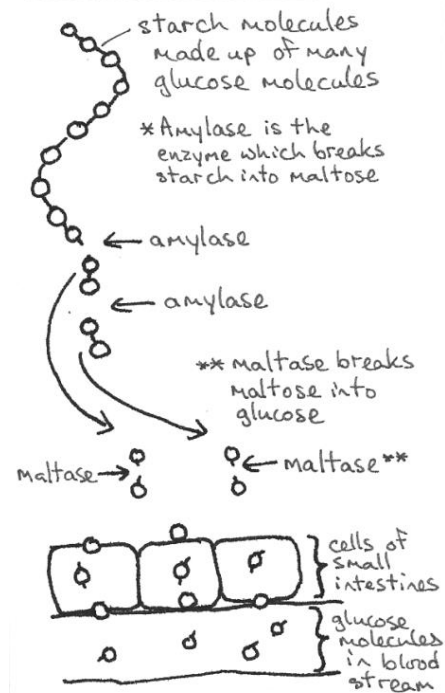 starch molecules
made up of many
glucose molecules
*Amylase is the
enzyme which breaks
starch into maltose
amylase
amylase
** maltase breaks
maltose into
glucose
maltase
maltase**
cells of
small
intestines
glucose
molecules
in blood
stream